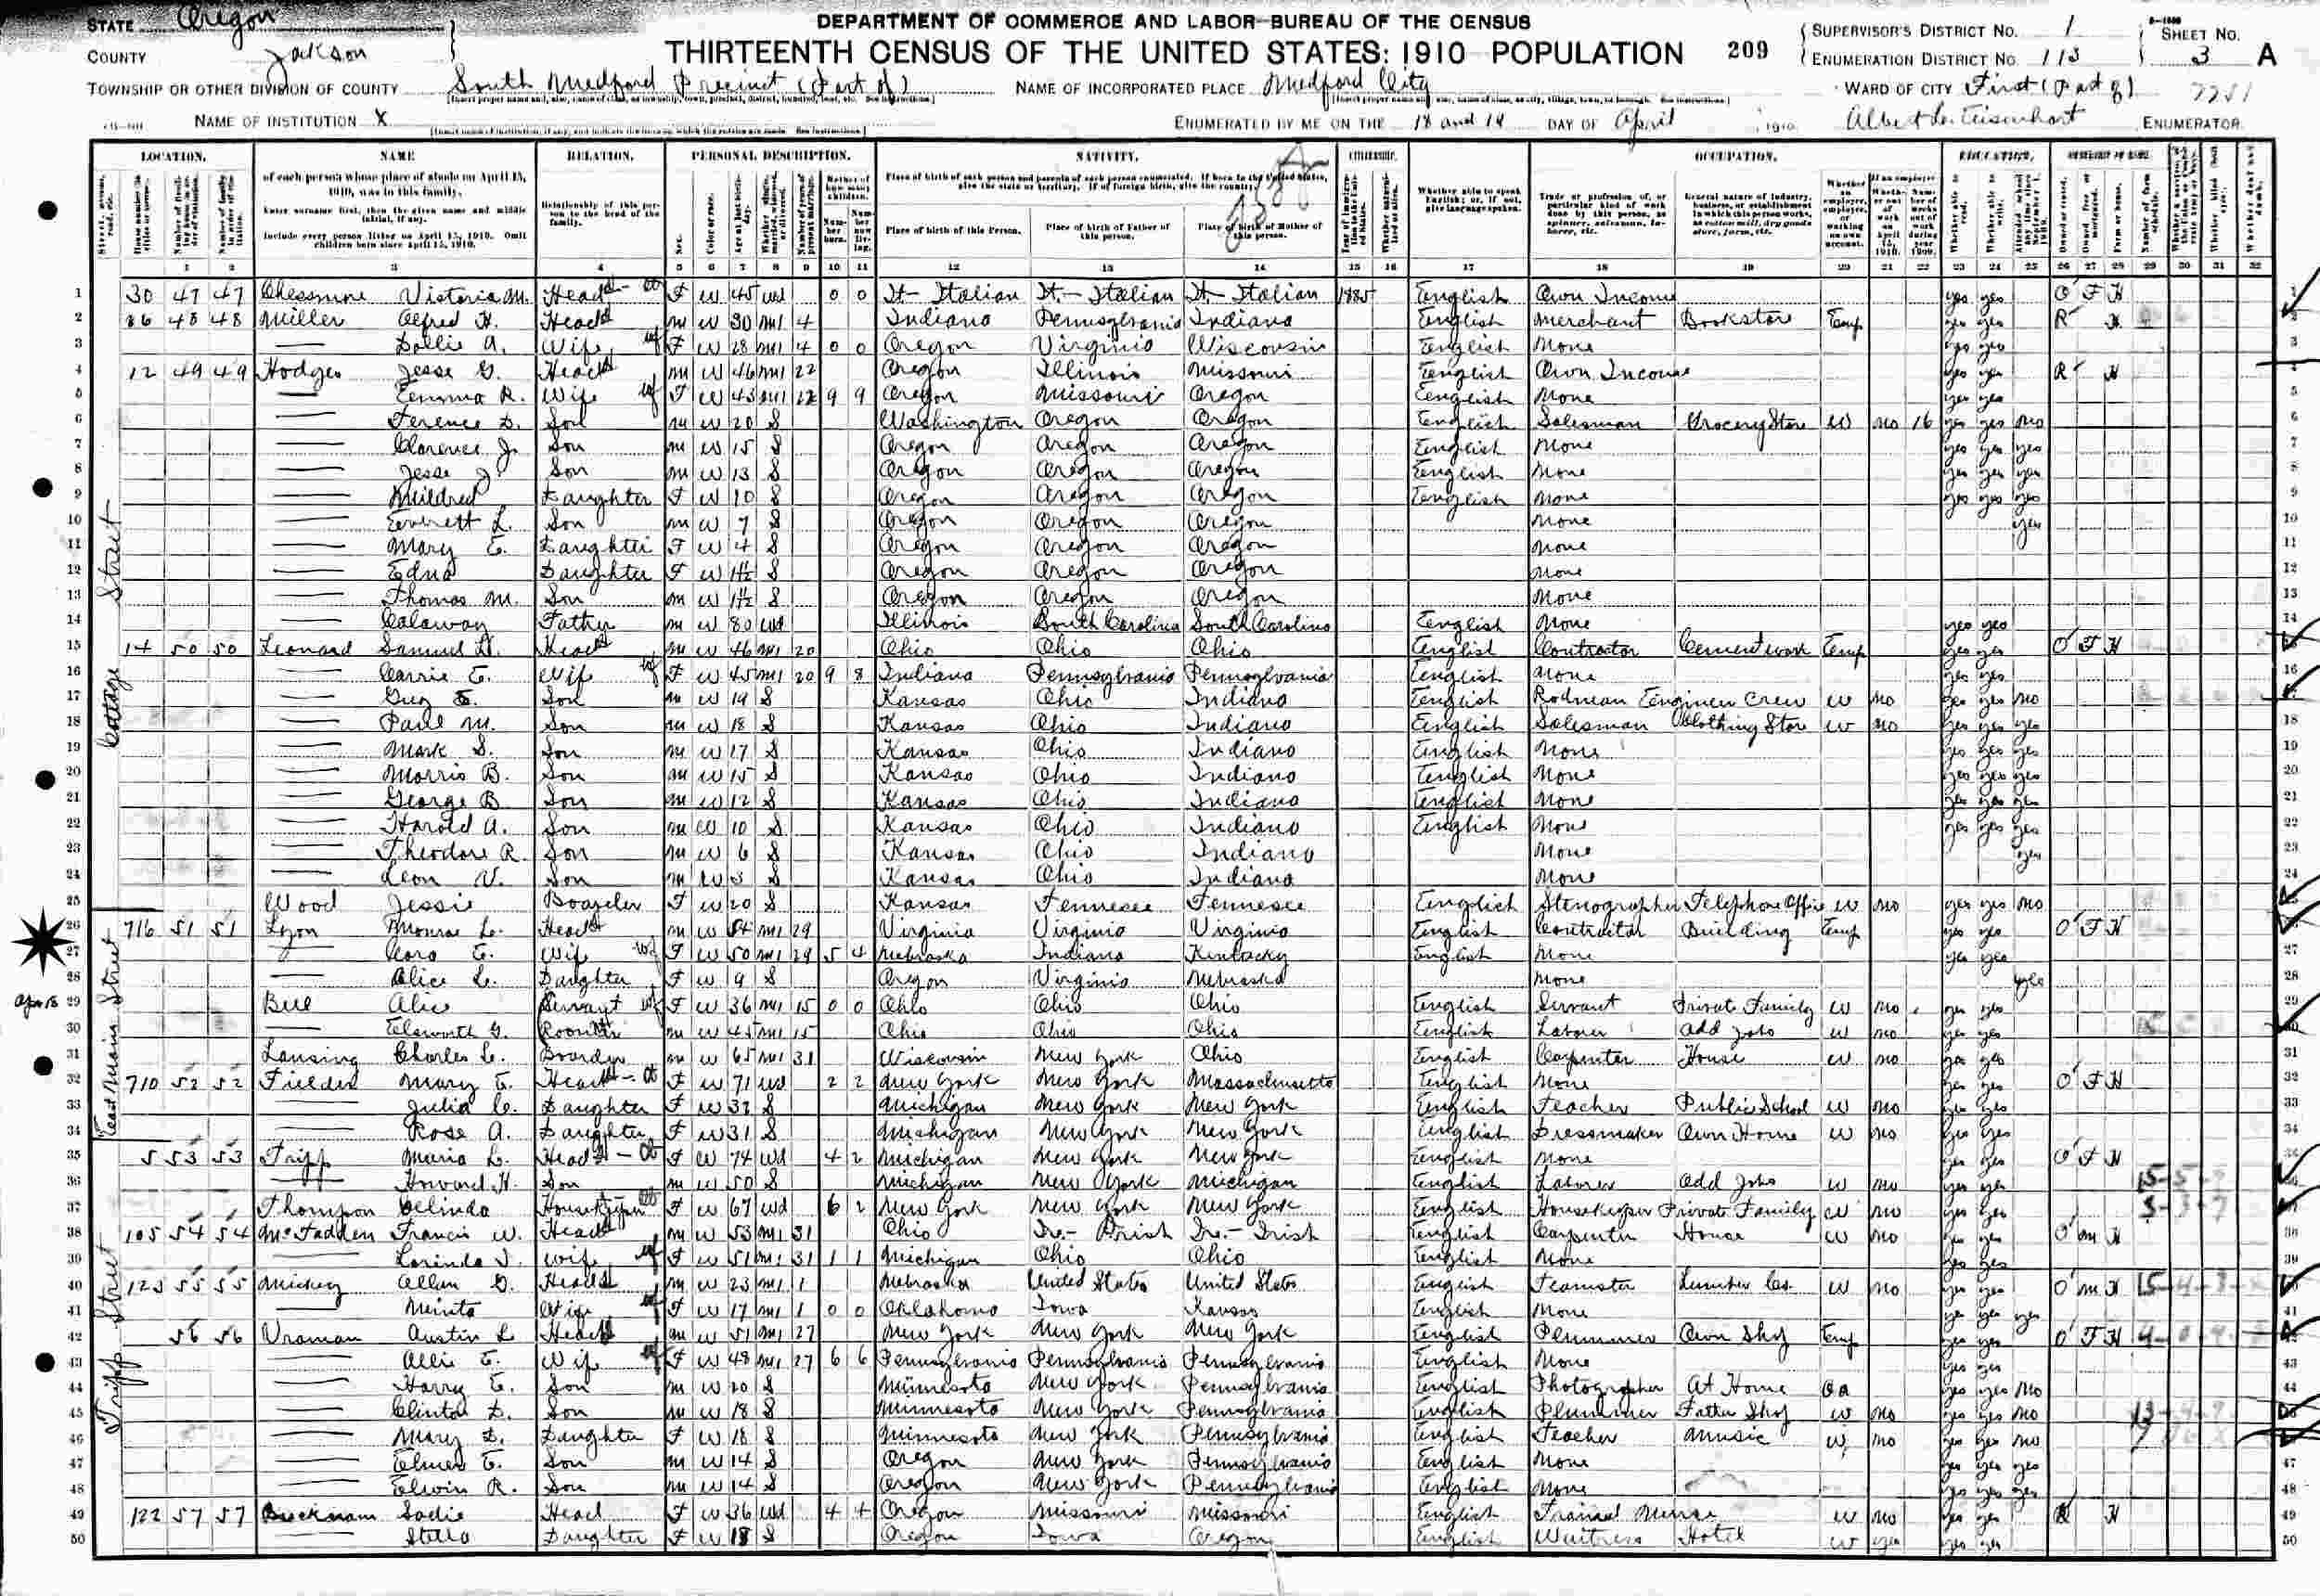 STATE Oregon
COUNTY Jackson
TOWNSHIP OR OTHER DIVISION OF COUNTY South Medford Precinct (Part of)
NAME OF INSTITUTION X
DEPARTMENT OF COMMERCE AND LABOR—BUREAU OF THE CENSUS
THIRTEENTH CENSUS OF THE UNITED STATES: 1910 POPULATION
209
NAME OF INCORPORATED PLACE Medford City
ENUMERATED BY ME ON THE 18 and 19 DAY OF April, 1910.
SUPERVISOR'S DISTRICT NO. 1
ENUMERATION DISTRICT NO. 113
SHEET NO. 3 A
WARD OF CITY First (Part of)
Albert L. Eisenhart ENUMERATOR.
LOCATION. NAME RELATION. PERSONAL DESCRIPTION. NATIVITY. CITIZENSHIP. OCCUPATION. EDUCATION.
of each person whose place of abode on April 15, 1910, was in this family.
Enter surname first, then the given name and middle initial, if any.
Include every person living on April 15, 1910. Omit children born since April 15, 1910.
Relationship of this person to the head of the family.
Place of birth of this Person. Place of birth of Father of this person. Place of birth of Mother of this person.
Whether able to speak English; or, if not, give language spoken.
1 2 3 4 5 6 7 8 9 10 11 12 13 14 15 16 17 18 19 20 21 22 23 24 25 26 27 28 29 30 31 32
Cottage Street
1 30 47 47 Victoria M. Head F W 45 wd 0 0 It-Italian It-Italian It-Italian 1885 English Own Income yes yes O F H
2 48 48 Miller Alfred H. Head M W 30 M1 4 Indiana Pennsylvania Indiana English Merchant Bookstore Emp yes yes R H
3 — Dollie A. Wife F W 28 M1 4 0 0 Oregon Virginia Wisconsin English None yes yes
4 12 49 49 Hodges Jesse G. Head M W 46 M1 22 Oregon Illinois Missouri English Own Income yes yes R H
5 — Emma R. Wife F W 43 M1 22 9 9 Oregon Missouri Oregon English None yes yes
6 — Ference D. Son M W 20 S Washington Oregon Oregon English Salesman Grocery Store W no 16 yes yes no
7 — Clarence J. Son M W 15 S Oregon Oregon Oregon English None yes yes yes
8 — Jesse J. Son M W 13 S Oregon Oregon Oregon English None yes yes yes
9 — Mildred Daughter F W 10 S Oregon Oregon Oregon English None yes yes yes
10 — Everett L. Son M W 7 S Oregon Oregon Oregon None yes
11 — Mary E. Daughter F W 4 S Oregon Oregon Oregon None
12 — Edna Daughter F W 1½ S Oregon Oregon Oregon None
13 — Thomas M. Son M W 1½ S Oregon Oregon Oregon None
14 — Calaway Father M W 80 wd Illinois South Carolina South Carolina English None yes yes
15 14 50 50 Leonard Samuel H. Head M W 46 M1 20 Ohio Ohio Ohio English Contractor Cement work Emp yes yes O F H
16 — Carrie E. Wife F W 45 M1 20 9 8 Indiana Pennsylvania Pennsylvania English None yes yes
17 — Guy E. Son M W 19 S Kansas Ohio Indiana English Rodman Engineer Crew W no yes yes no
18 — Paul M. Son M W 18 S Kansas Ohio Indiana English Salesman Clothing Store W no yes yes yes
19 — Mark S. Son M W 17 S Kansas Ohio Indiana English None yes yes yes
20 — Morris B. Son M W 15 S Kansas Ohio Indiana English None yes yes yes
21 — George B. Son M W 12 S Kansas Ohio Indiana English None yes yes yes
22 — Harold A. Son M W 10 S Kansas Ohio Indiana English None yes yes yes
23 — Theodore R. Son M W 6 S Kansas Ohio Indiana None yes
24 — Leon V. Son M W 3 S Kansas Ohio Indiana None
25 Wood Jessie Boarder F W 20 S Kansas Tennesee Tennesee English Stenographer Telephone Office W no yes yes no
East Main Street
26 716 51 51 Lyon Monroe L. Head M W 54 M1 29 Virginia Virginia Virginia English Contractor Building Emp yes yes O F H
27 — Cora E. Wife F W 50 M1 29 5 4 Nebraska Indiana Kentucky English None yes yes
28 — Alice L. Daughter F W 9 S Oregon Virginia Nebraska None yes
29 Alice Servant F W 36 M1 15 0 0 Ohio Ohio Ohio English Servant Private Family W no yes yes
30 — Elsworth G. Roomer M W 45 M1 15 Ohio Ohio Ohio English Laborer Odd Jobs W no yes yes
31 Lansing Charles L. Boarder M W 65 M1 31 Wisconsin New York Ohio English Carpenter House W no yes yes
32 710 52 52 Fielder Mary E. Head F W 71 wd 2 2 New York New York Massachusetts English None yes yes O F H
33 — Julia C. Daughter F W 32 S Michigan New York New York English Teacher Public School W no yes yes
34 — Rose A. Daughter F W 31 S Michigan New York New York English Dressmaker Own Home W no yes yes
Tripp Street
35 5 53 53 Tripp Maria L. Head F W 74 wd 4 2 Michigan New York New York English None yes yes O F H
36 — Howard H. Son M W 50 S Michigan New York Michigan English Laborer Odd Jobs W no yes yes
37 Thompson Clinda Housekeeper F W 67 wd 6 2 New York New York New York English Housekeeper Private Family W no yes yes
38 105 54 54 McFadden Francis W. Head M W 53 M1 31 Ohio Ire-Irish Ire-Irish English Carpenter House W no yes yes O M H
39 — Lorinda J. Wife F W 51 M1 31 1 1 Michigan Ohio Ohio English None yes yes
40 123 55 55 Mickey Allen G. Head M W 23 M1 1 Nebraska United States United States English Teamster Lumber Co. W no yes yes O M H
41 — Minta Wife F W 17 M1 1 0 0 Oklahoma Iowa Kansas English None yes yes yes
42 56 56 Vroman Austin L. Head M W 51 M1 27 New York New York New York English Plummer Own Shop Emp yes yes O F H
43 — Allie E. Wife F W 48 M1 27 6 6 Pennsylvania Pennsylvania Pennsylvania English None yes yes
44 — Harry E. Son M W 20 S Minnesota New York Pennsylvania English Photographer At Home OA yes yes no
45 — Clinton D. Son M W 18 S Minnesota New York Pennsylvania English Plummer Father Shop W no yes yes no
46 — Mary D. Daughter F W 18 S Minnesota New York Pennsylvania English Teacher Music W no yes yes no
47 — Elmer E. Son M W 14 S Oregon New York Pennsylvania English None yes yes yes
48 — Elwin R. Son M W 14 S Oregon New York Pennsylvania English None yes yes yes
49 122 57 57 Sadie Head F W 36 wd 4 4 Oregon Missouri Missouri English Trained Nurse W no yes yes R H
50 — Stella Daughter F W 18 S Oregon Iowa Oregon English Waitress Hotel W yes yes yes